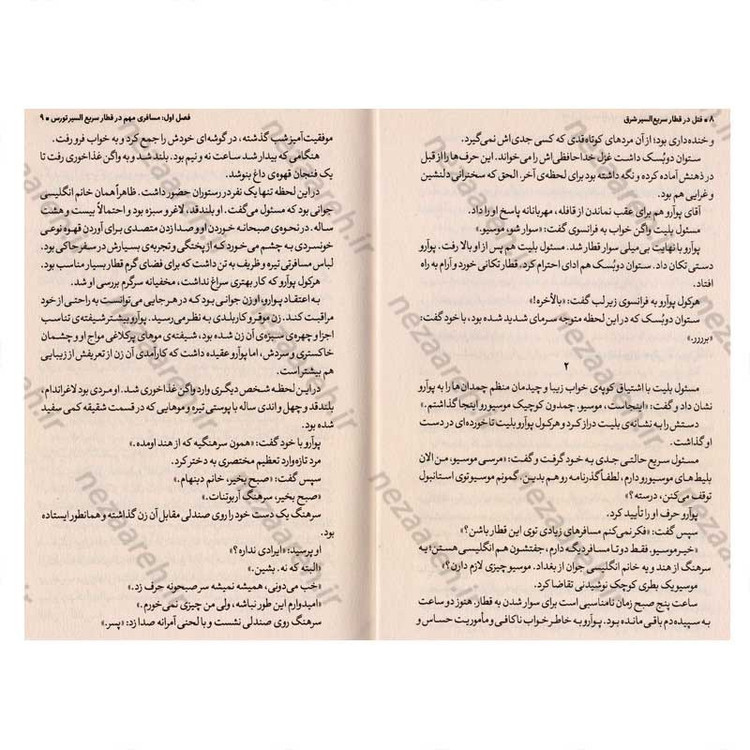 ۸ ■ قتل در قطار سریع‌السیر شرق
و خنده‌داری بود؛ از آن مردهای کوتاه‌قدی که کسی جدی‌اش نمی‌گیرد.
ستوان دوبُسک داشت غزل خداحافظی‌اش را می‌خواند. این حرف‌ها را از قبل
در ذهنش آماده کرده و نگه داشته بود برای لحظه‌ی آخر. الحق که سخنرانی دلنشین
و غرایی هم بود.
آقای پوآرو هم برای عقب نماندن از قافله، مهربانانه پاسخ او را داد.
مسئول بلیت واگن خواب به فرانسوی گفت: «سوار شو، موسیو.»
پوآرو با نهایت بی‌میلی سوار قطار شد. مسئول بلیت هم پس از او بالا رفت. پوآرو
دستی تکان داد. ستوان دوبُسک هم ادای احترام کرد. قطار تکانی خورد و آرام به راه
افتاد.
هرکول پوآرو به فرانسوی زیر لب گفت: «بالأخره!»
ستوان دوبُسک که در این لحظه متوجه سرمای شدید شده بود، با خود گفت:
«بررررر.»
۲
مسئول بلیت با اشتیاق کوپه‌ی خواب زیبا و چیدمان منظم چمدان‌ها را به پوآرو
نشان داد و گفت: «اینجاست، موسیو. چمدون کوچیک موسیو رو اینجا گذاشتم.»
دستش را به نشانه‌ی بلیت دراز کرد و هرکول پوآرو بلیت تاخورده‌ای در دست
او گذاشت.
مسئول سریع حالتی جدی به خود گرفت و گفت: «مرسی موسیو، من الان
بلیط‌های موسیو رو دارم، لطفاً گذرنامه رو هم بدین. گمونم موسیو توی استانبول
توقف می‌کنن، درسته؟»
پوآرو حرف او را تأیید کرد.
سپس گفت: «فکر نمی‌کنم مسافرهای زیادی توی این قطار باشن؟»
«خیر موسیو. فقط دو تا مسافر دیگه دارم، جفتشون هم انگلیسی هستن؛ یه
سرهنگ از هند و یه خانم انگلیسی جوان از بغداد. موسیو چیزی لازم دارن؟»
موسیو یک بطری کوچک نوشیدنی تقاضا کرد.
ساعت پنج صبح زمان نامناسبی است برای سوار شدن به قطار. هنوز دو ساعت
به سپیده‌دم باقی مانده بود. پوآرو به خاطر خواب ناکافی و مأموریت حساس و
فصل اول: مسافری مهم در قطار سریع السیر تورس ■ ۹
موفقیت‌آمیز شب گذشته، در گوشه‌ای خودش را جمع کرد و به خواب فرو رفت.
هنگامی که بیدار شد ساعت نه و نیم بود. بلند شد و به واگن غذاخوری رفت تا
یک فنجان قهوه‌ی داغ بنوشد.
در این لحظه تنها یک نفر در رستوران حضور داشت. ظاهراً همان خانم انگلیسی
جوانی بود که مسئول می‌گفت. او بلندقد، لاغر و سبزه بود و احتمالاً بیست و هشت
ساله. در نحوه‌ی صبحانه خوردن او و صدا زدن متصدی برای آوردن قهوه نوعی
خونسردی به چشم می‌خورد که از پختگی و تجربه‌ی بسیارش در سفر حاکی بود.
لباس مسافرتی تیره و ظریف به تن داشت که برای فضای گرم قطار بسیار مناسب بود.
هرکول پوآرو که کار بهتری سراغ نداشت، مخفیانه سرگرم بررسی او شد.
به اعتقاد پوآرو، او زن جوانی بود که در هر جایی می‌توانست به راحتی از خود
مراقبت کند. زن موقر و کاربلدی به نظر می‌رسید. پوآرو بیشتر شیفته‌ی تناسب
اجزا و چهره‌ی سبزه‌ی آن زن شده بود، شیفته‌ی موهای پرکلاغی مواج او و چشمان
خاکستری و سردش، اما پوآرو عقیده داشت که کارآمدی آن زن از تعریفش از زیبایی
هم بیشتر است.
در این لحظه شخص دیگری وارد واگن غذاخوری شد. او مردی بود لاغراندام،
بلندقد و چهل و اندی ساله با پوستی تیره و موهایی که در قسمت شقیقه کمی سفید
شده بود.
پوآرو با خود گفت: «همون سرهنگیه که از هند اومده.»
مرد تازه‌وارد تعظیم مختصری به دختر کرد.
سپس گفت: «صبح بخیر، خانم دبنهام.»
«صبح بخیر، سرهنگ آربوتنات.»
سرهنگ یک دست خود را روی صندلی مقابل آن زن گذاشته و همانطور ایستاده
بود.
او پرسید: «ایرادی نداره؟»
«البته که نه. بشین.»
«خب می‌دونی، همیشه نمیشه سر صبحونه حرف زد.»
«امیدوارم این طور نباشه، ولی من چیزی نمی‌خورم.»
سرهنگ روی صندلی نشست و با لحنی آمرانه صدا زد: «پسر.»
nezaareh.ir